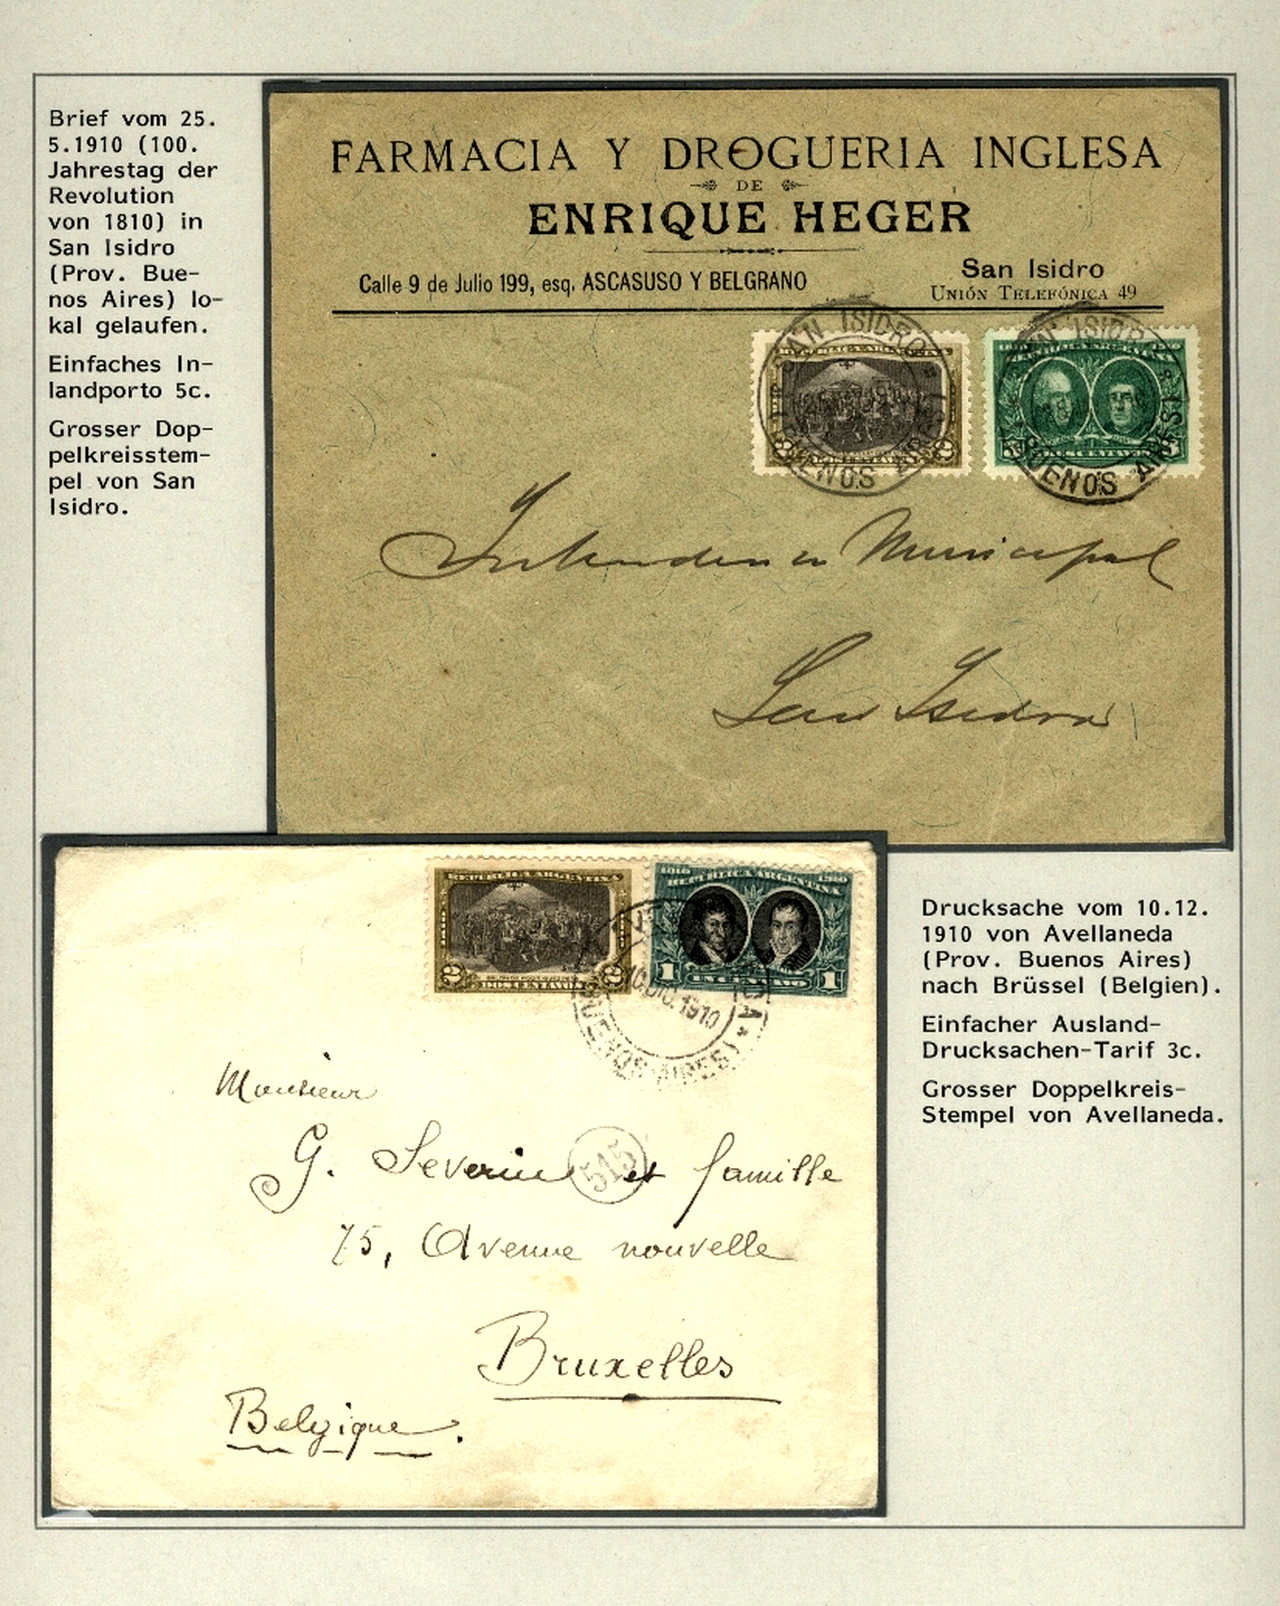 Brief vom 25.
5.1910 (100.
Jahrestag der
Revolution
von 1810) in
San Isidro
(Prov. Bue-
nos Aires) lo-
kal gelaufen.
Einfaches In-
landporto 5c.
Grosser Dop-
pelkreisstem-
pel von San
Isidro.
FARMACIA Y DROGUERIA INGLESA
DE
ENRIQUE HEGER
Calle 9 de Julio 199, esq. ASCASUSO Y BELGRANO
San Isidro
UNIÓN TELEFÓNICA 49
SAN ISIDRO
BUENOS AIRES
SAN ISIDRO
BUENOS AIRES
Intendencia Municipal
San Isidro
REPUBLICA ARGENTINA
2 2
DOS CENTAVOS
1810 1910
REPUBLICA ARGENTINA
1 1
UN CENTAVO
10.DIC.1910
(BUENOS AIRES)
Monsieur
G. Severin et famille
515
75, Avenue nouvelle
Bruxelles
Belgique.
Drucksache vom 10.12.
1910 von Avellaneda
(Prov. Buenos Aires)
nach Brüssel (Belgien).
Einfacher Ausland-
Drucksachen-Tarif 3c.
Grosser Doppelkreis-
Stempel von Avellaneda.